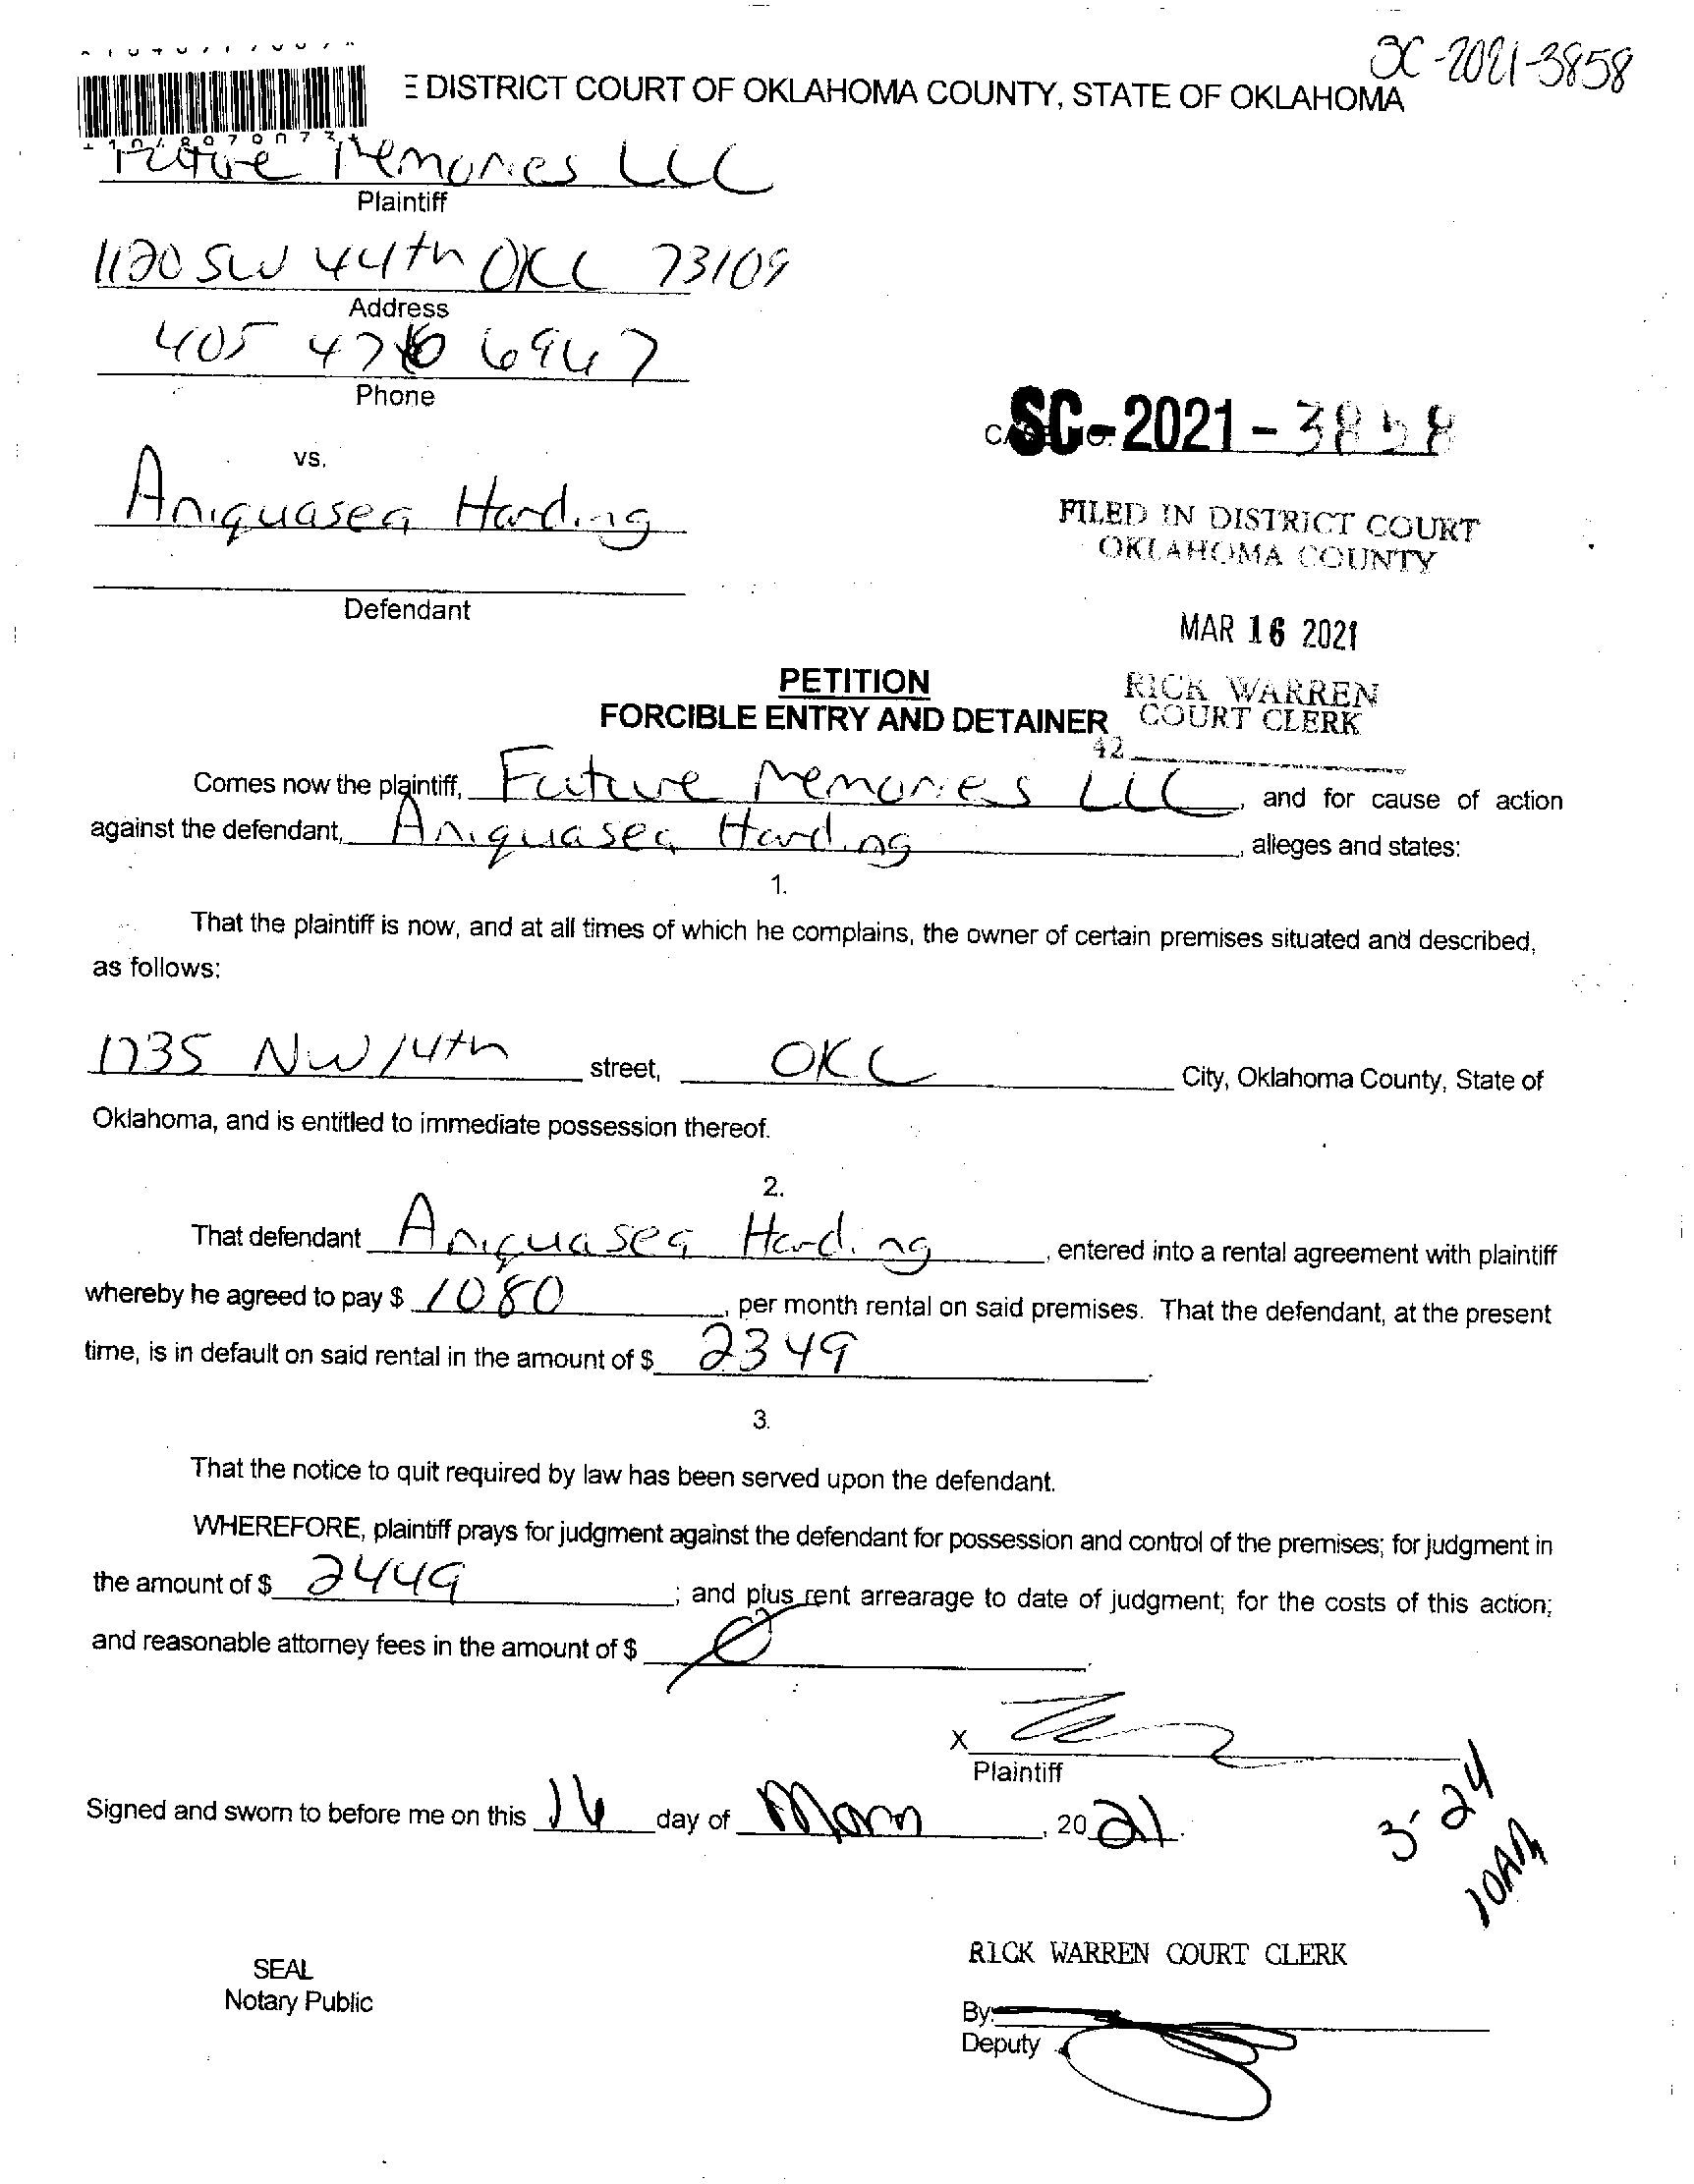 SC-2021-3858
E DISTRICT COURT OF OKLAHOMA COUNTY, STATE OF OKLAHOMA
Future Memories LLC
Plaintiff
1120 SW 44th OKC 73109
Address
405 476 6947
Phone
SC-2021-3858
vs.
Aniquasea Harding
FILED IN DISTRICT COURT
OKLAHOMA COUNTY
Defendant
MAR 16 2021
PETITION
RICK WARREN
FORCIBLE ENTRY AND DETAINER
COURT CLERK
42
Comes now the plaintiff, Future Memories LLC, and for cause of action
against the defendant, Aniquasea Harding, alleges and states:
1.
That the plaintiff is now, and at all times of which he complains, the owner of certain premises situated and described,
as follows:
1735 NW 14th street, OKC City, Oklahoma County, State of
Oklahoma, and is entitled to immediate possession thereof.
2.
That defendant Aniquasea Harding, entered into a rental agreement with plaintiff
whereby he agreed to pay $ 1080, per month rental on said premises. That the defendant, at the present
time, is in default on said rental in the amount of $ 2349.
3.
That the notice to quit required by law has been served upon the defendant.
WHEREFORE, plaintiff prays for judgment against the defendant for possession and control of the premises; for judgment in
the amount of $ 2449; and plus rent arrearage to date of judgment; for the costs of this action;
and reasonable attorney fees in the amount of $ 0.
X
Plaintiff
Signed and sworn to before me on this 16 day of March, 2021.
3-24
10AM
RICK WARREN COURT CLERK
SEAL
Notary Public
By:
Deputy